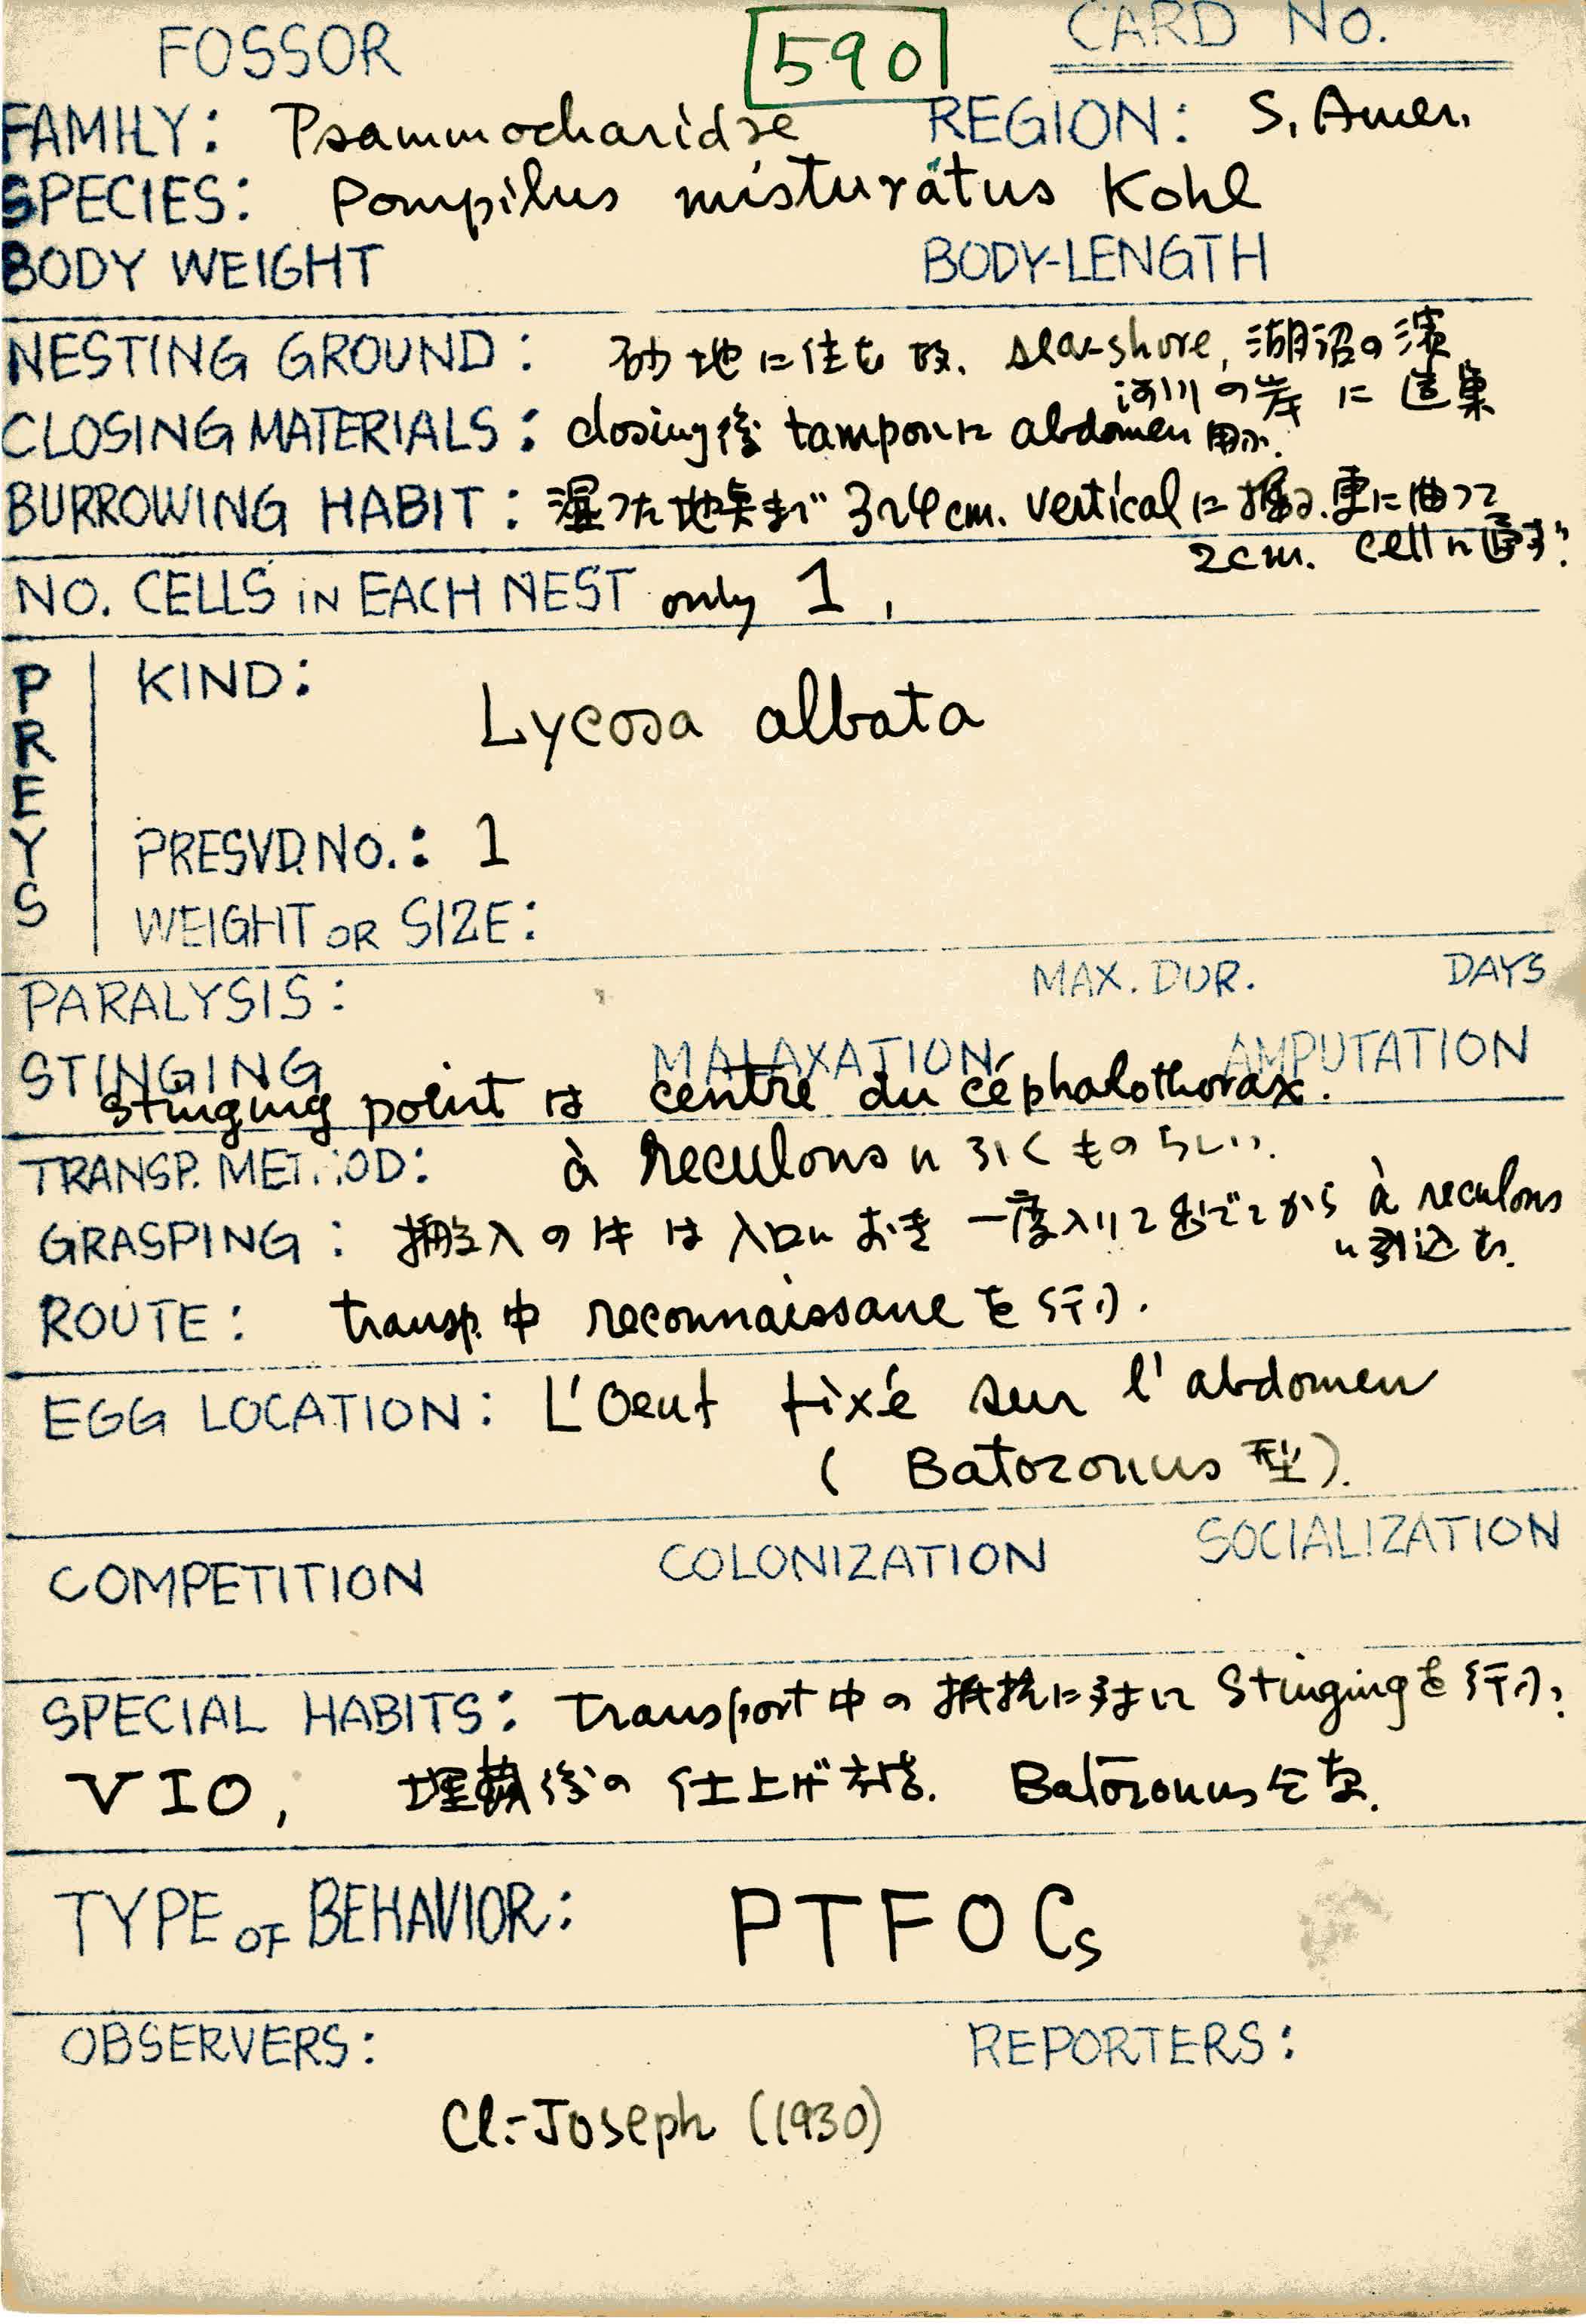 FOSSOR 590 CARD NO.
FAMILY: Psammocharidae REGION: S. Amer.
SPECIES: Pompilus misturatus Kohl
BODY WEIGHT BODY-LENGTH
NESTING GROUND: 砂地に住む故、sea-shore, 湖沼の濱
河川の岸に造巣
CLOSING MATERIALS: closing後 tamponに abdomen 用ふ.
BURROWING HABIT: 湿った地点まで 3~4cm. vertical に掘る.更に曲って
2cm. cell
NO. CELLS IN EACH NEST only 1,
PREYS
KIND:
Lycosa albata
PRESVD. NO.: 1
WEIGHT OR SIZE:
PARALYSIS: MAX. DUR. DAYS
STINGING MALAXATION AMPUTATION
Stinging point は centre du céphalothorax.
TRANSP. METHOD: à reculons に引くものらしい.
GRASPING: 搬入の时は入口におき 一度入りて出でてから à reculons
に引込む.
ROUTE: transp. 中 reconnaissance を行ふ.
EGG LOCATION: L'Oeuf fixé sur l'abdomen
( Batozonus 型).
COMPETITION COLONIZATION SOCIALIZATION
SPECIAL HABITS: transport 中の抵抗に対して Stinging を行ふ.
VIO, 後の仕上げ Batozonus
TYPE OF BEHAVIOR: PTFOCs
OBSERVERS: REPORTERS:
Cl.-Joseph (1930)